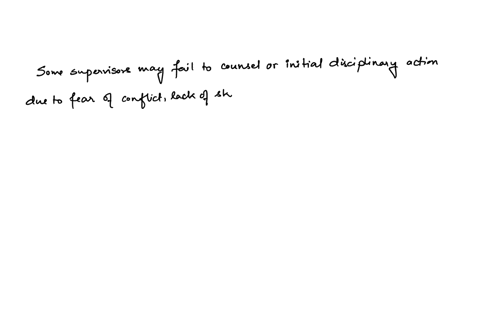 Some supervisors may fail to counsel or initial disciplinary action
due to fear of conflict, lack of sk